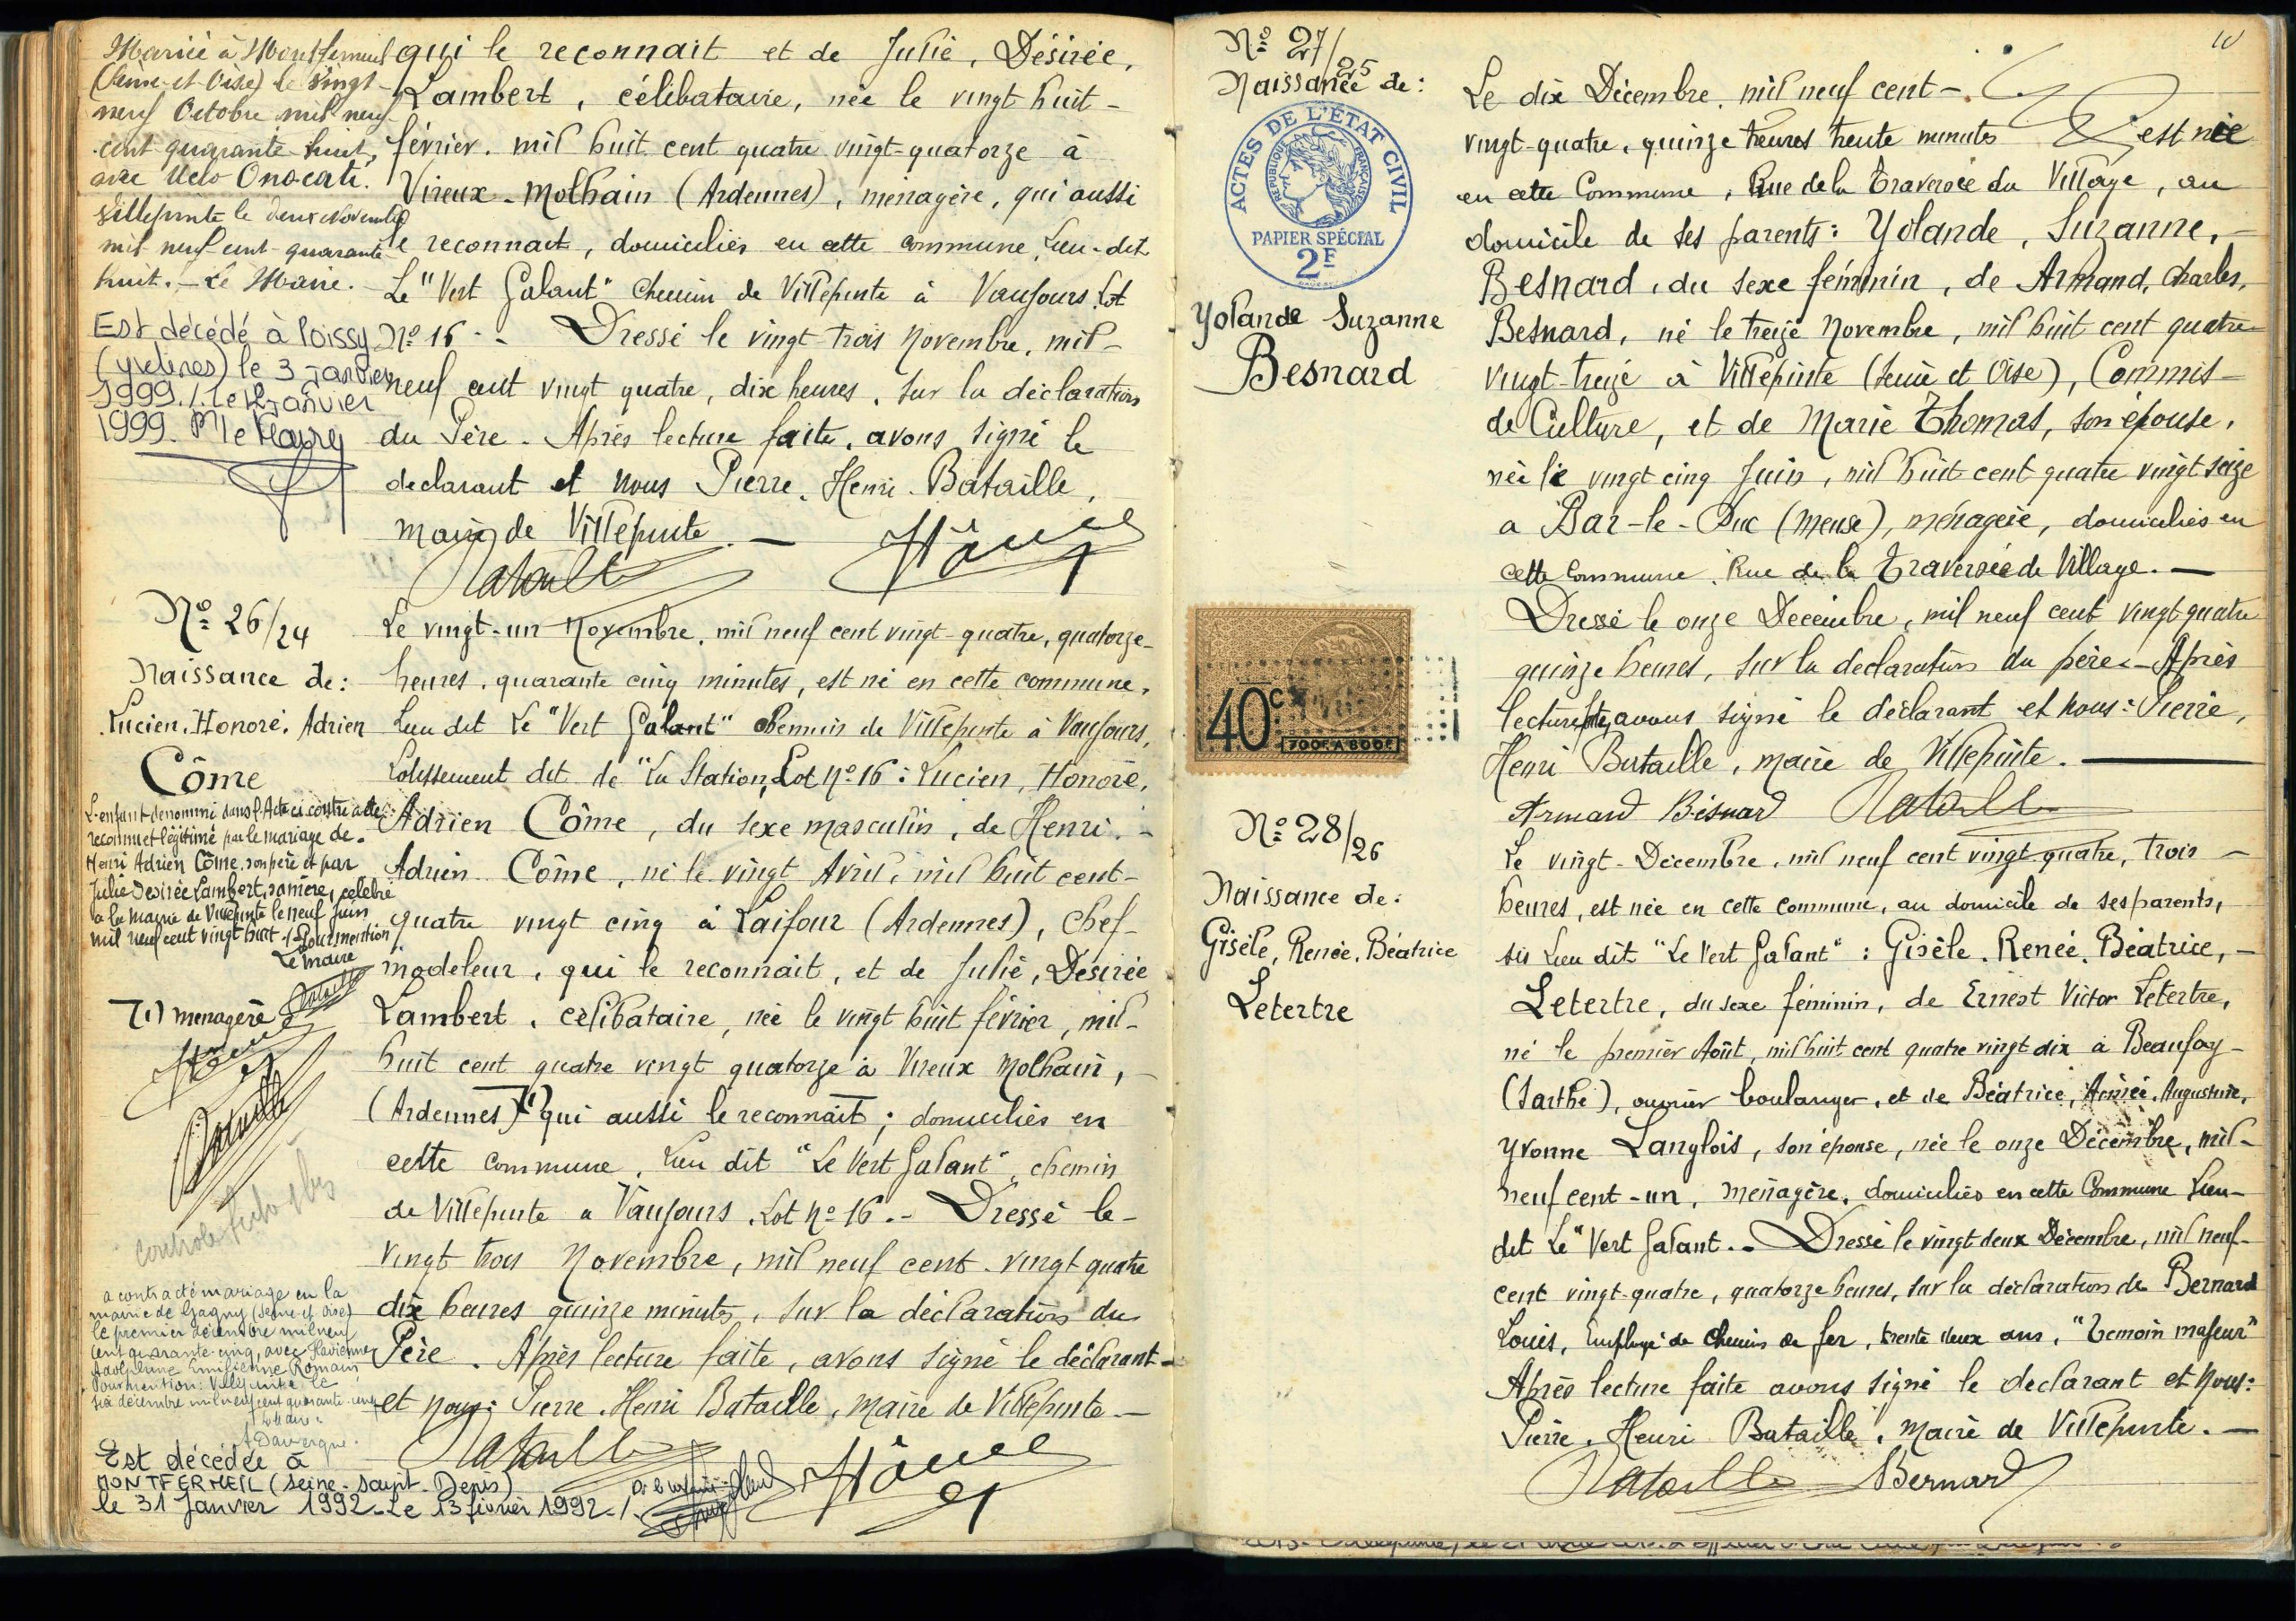 Mariée à Montfermeil
(Seine-et-Oise) le vingt-
neuf Octobre mil neuf
cent quarante huit,
avec Onocati.
Villepinte le deux Novembre
mil neuf cent quarante
huit. - Le Maire.
Est décédé à Poissy
(Yvelines) le 3 janvier
1999. /. le 12 janvier
1999.
qui le reconnait et de Julie, Désirée,
Lambert, célibataire, née le vingt huit -
février. mil huit cent quatre vingt-quatorze à
Vireux-Molhain (Ardennes), ménagère, qui aussi
le reconnait, domiciliés en cette commune, Lieu-dit
Le "Vert Galant" Chemin de Villepinte à Vaujours Lot
No 16 -. Dressé le vingt-trois Novembre, mil-
neuf cent vingt quatre, dix heures, sur la déclaration
du Père. Après lecture faite, avons signé le
déclarant et nous Pierre. Henri. Bataille,
maire de Villepinte. -
Bataille HCôme
No 26/24
Naissance de:
Lucien. Honoré. Adrien
Côme
L'enfant dénommé dans l'Acte ci contre a été
reconnu et légitimé par le mariage de
Henri Adrien Côme, son père et par
Julie Désirée Lambert, sa mère, célébré
à la Mairie de Villepinte le neuf Juin
mil neuf cent vingt huit -/- Pour mention
Le maire
(1) menagère
HCôme
Bataille
controle
a contracté mariage en la
mairie de Gagny (Seine et Oise)
le premier décembre mil neuf
cent quarante-cinq, avec Flavienne
Adolphine Emilienne Romain
Pour mention: Villepinte le
six décembre mil neuf cent quarante cinq
Le Maire
Est décédée à
MONTFERMEIL (Seine-Saint-Denis)
le 31 Janvier 1992. Le 13 février 1992. /.
Le vingt-un Novembre, mil neuf cent vingt-quatre, quatorze-
heures, quarante cinq minutes, est né en cette commune,
Lieu dit Le "Vert Galant" Chemin de Villepinte à Vaujours,
Lotissement dit de "La Station, Lot No 16: Lucien, Honoré,
Adrien Côme, du sexe masculin, de Henri. -
Adrien Côme, né le vingt Avril, mil huit cent-
quatre vingt cinq à Laifour (Ardennes), Chef-
modeleur, qui le reconnait, et de Julie, Désirée
Lambert, célibataire, née le vingt huit février, mil-
huit cent quatre vingt quatorze à Vireux Molhain, -
(Ardennes) (1) qui aussi le reconnait; domiciliés en
cette commune, Lieu dit "Le Vert Galant", chemin
de Villepinte à Vaujours, Lot No 16. - Dressé le-
vingt trois Novembre, mil neuf cent vingt quatre
dix heures quinze minutes, sur la déclaration du
Père. Après lecture faite, avons signé le déclarant -
et nous: Pierre. Henri Bataille, maire de Villepinte -
Bataille HCôme
10
No 27/25
Naissance de:
ACTES DE L'ÉTAT CIVIL
RÉPUBLIQUE FRANÇAISE
PAPIER SPÉCIAL
2F
Yolande Suzanne
Besnard
Le dix Décembre, mil neuf cent -.
vingt-quatre, quinze heures trente minutes est née
en cette Commune, Rue de la Traversée du Village, au
domicile de ses parents: Yolande, Suzanne, -
Besnard, du sexe féminin, de Armand, Charles,
Besnard, né le treize Novembre, mil huit cent quatre
vingt-treize à Villepinte (Seine et Oise), Commis-
de Culture, et de Marie Thomas, son épouse,
née le vingt cinq Juin, mil huit cent quatre vingt seize
a Bar-le-Duc (Meuse), ménagère, domiciliés en
cette Commune, Rue de la Traversée de Village. -
Dressé le onze Décembre, mil neuf cent vingt quatre
quinze heures, sur la déclaration du père. - Après
lecture fte, avons signé le déclarant et nous: Pierre,
Henri Bataille, maire de Villepinte. -
Armand Besnard Bataille
40c
700F A 800F
No 28/26
Naissance de:
Gisèle, Renée, Béatrice
Letertre
Le vingt-Décembre, mil neuf cent vingt quatre, trois -
heures, est née en cette commune, au domicile de ses parents,
sis Lieu dit "Le Vert Galant": Gisèle. Renée. Béatrice, -
Letertre, du sexe féminin, de Ernest Victor Letertre,
né le premier Août, mil huit cent quatre vingt dix à Beaufay -
(Sarthe), ouvrier boulanger, et de Béatrice, Aimée, Augustine,
Yvonne Langlois, son épouse, née le onze Décembre, mil-
neuf cent-un, ménagère, domiciliés en cette Commune Lieu-
dit Le "Vert Galant. - Dressé le vingt deux Décembre, mil neuf-
cent vingt-quatre, quatorze heures, sur la déclaration de Bernard
Louis, Employé de Chemin de fer, trente deux ans, "Témoin majeur"
Après lecture faite avons signé le déclarant et Nous:
Pierre. Henri Bataille, Maire de Villepinte. -
Bataille Bernard